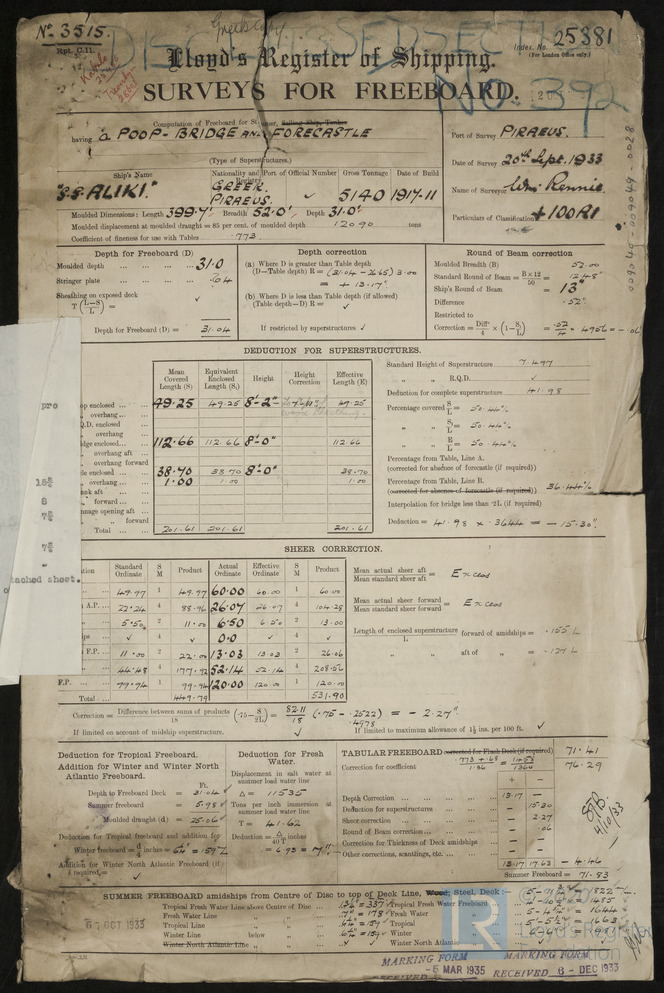 No. 3515.
Greek copy
25381
Rpt. C.11.
Index. No.
(For London Office only.)
Lloyd's Register of Shipping.
SURVEYS FOR FREEBOARD.
No. 392
Computation of Freeboard for Steamer, Sailing Ship, Tanker
having a POOP-BRIDGE AND FORECASTLE
(Type of Superstructures.)
Port of Survey PIRAEUS.
Date of Survey 20th Sept. 1933
Name of Surveyor Wm. Rennie.
Particulars of Classification +100A1
Ship's Name
Nationality and Port of Official Number
Registry
Gross Tonnage
Date of Build
"S.S. ALIKI."
GREEK.
PIRAEUS.
5140
1917-11
Moulded Dimensions: Length 399.7' Breadth 52.0' Depth 31.0'
Moulded displacement at moulded draught = 85 per cent. of moulded depth 12090 tons
Coefficient of fineness for use with Tables .773
Depth for Freeboard (D)
Moulded depth 31.0
Stringer plate .04
Sheathing on exposed deck
T (L-S/L) =
Depth for Freeboard (D) = 31.04
Depth correction
(a) Where D is greater than Table depth
(D-Table depth) R = (31.04-26.65) 3.00
= + 13.17"
(b) Where D is less than Table depth (if allowed)
(Table depth-D) R =
If restricted by superstructures
Round of Beam correction
Moulded Breadth (B) 52.00
Standard Round of Beam = B×12/50 = 12.48"
Ship's Round of Beam = 13"
Difference .52"
Restricted to
Correction = Diff/4 × (1-S/L) = .52/4 × .4956 = -.06
DEDUCTION FOR SUPERSTRUCTURES.
Mean Covered Length (S)
Equivalent Enclosed Length (S1)
Height
Height Correction
Effective Length (E)
op enclosed 49.25 49.25 8'-2" 49.25
overhang
Q.D. enclosed
overhang
dge enclosed 112.66 112.66 8'-0" 112.66
overhang aft
overhang forward
le enclosed 38.70 38.70 8'-0" 38.70
overhang 1.00 1.00 1.00
nk aft
forward
nnage opening aft
forward
Total 201.61 201.61 201.61
Standard Height of Superstructure 7.497
R.Q.D.
Deduction for complete superstructure 41.98
Percentage covered S/L = 50.44%
S1/L = 50.44%
E/L = 50.44%
Percentage from Table, Line A.
(corrected for absence of forecastle (if required))
Percentage from Table, Line B. 36.44%
(corrected for absence of forecastle (if required))
Interpolation for bridge less than .2L (if required)
Deduction = 41.98 × .3644 = -15.30".
pro
8
tached sheet.
SHEER CORRECTION.
tion
Standard Ordinate
S M
Product
Actual Ordinate
Effective Ordinate
S M
Product
49.97 1 49.97 60.00 60.00 1 60.00
A.P. 22.24 4 88.96 26.07 26.07 4 104.28
5.50 2 11.00 6.50 6.50 2 13.00
4 0.0 4
F.P. 11.00 2 22.00 13.03 13.03 2 26.06
44.48 4 177.92 52.14 52.14 4 208.56
F.P. 99.94 1 99.94 120.00 120.00 1 120.00
Total 449.79 531.90
Mean actual sheer aft / Mean standard sheer aft = Excess
Mean actual sheer forward / Mean standard sheer forward = Excess
Length of enclosed superstructure / L forward of amidships = .155 L
aft of = .127 L
Correction = Difference between sums of products/18 (.75 - S/2L) = 82.11/18 (.75 - .2522) = -2.27".
.4978
If limited on account of midship superstructure.
If limited to maximum allowance of 1½ ins. per 100 ft.
Deduction for Tropical Freeboard.
Addition for Winter and Winter North Atlantic Freeboard.
Ft.
Depth to Freeboard Deck = 31.04
Summer freeboard = 5.98
Moulded draught (d) = 25.06
Deduction for Tropical freeboard and addition for
Winter freeboard = d/4 inches = 6¼" = 159
Addition for Winter North Atlantic Freeboard (if required) =
Deduction for Fresh Water.
Displacement in salt water at summer load water line
Δ = 11535
Tons per inch immersion at summer load water line
T = 41.62
Deduction = Δ/40T inches
= 6.93 = 7".
TABULAR FREEBOARD corrected for Flush Deck (if required) 71.41
Correction for coefficient .773+.68/1.36 = 1.453/1.360 76.29
+ -
Depth Correction 13.17 -
Deduction for superstructures - 15.30
Sheer correction - 2.27
Round of Beam correction - .06
Correction for Thickness of Deck amidships - -
Other corrections, scantlings, etc. - -
13.17 17.63 -4.46
Summer Freeboard = 71.83
4/10/33
SUMMER FREEBOARD amidships from Centre of Disc to top of Deck Line, Wood, Steel, Deck:
Tropical Fresh Water Line above Centre of Disc 13¼" = 337
Fresh Water Line 7" = 178
Tropical Line 6¼" = 159
Winter Line below 6¼" = 159
Winter North Atlantic Line
Tropical Fresh Water Freeboard
Fresh Water
Tropical
Winter
Winter North Atlantic
OCT 1933
LR
Lloyd's Register Foundation
MARKING FORM
RECEIVED -5 MAR 1935
MARKING FORM
RECEIVED 6 - DEC 1933